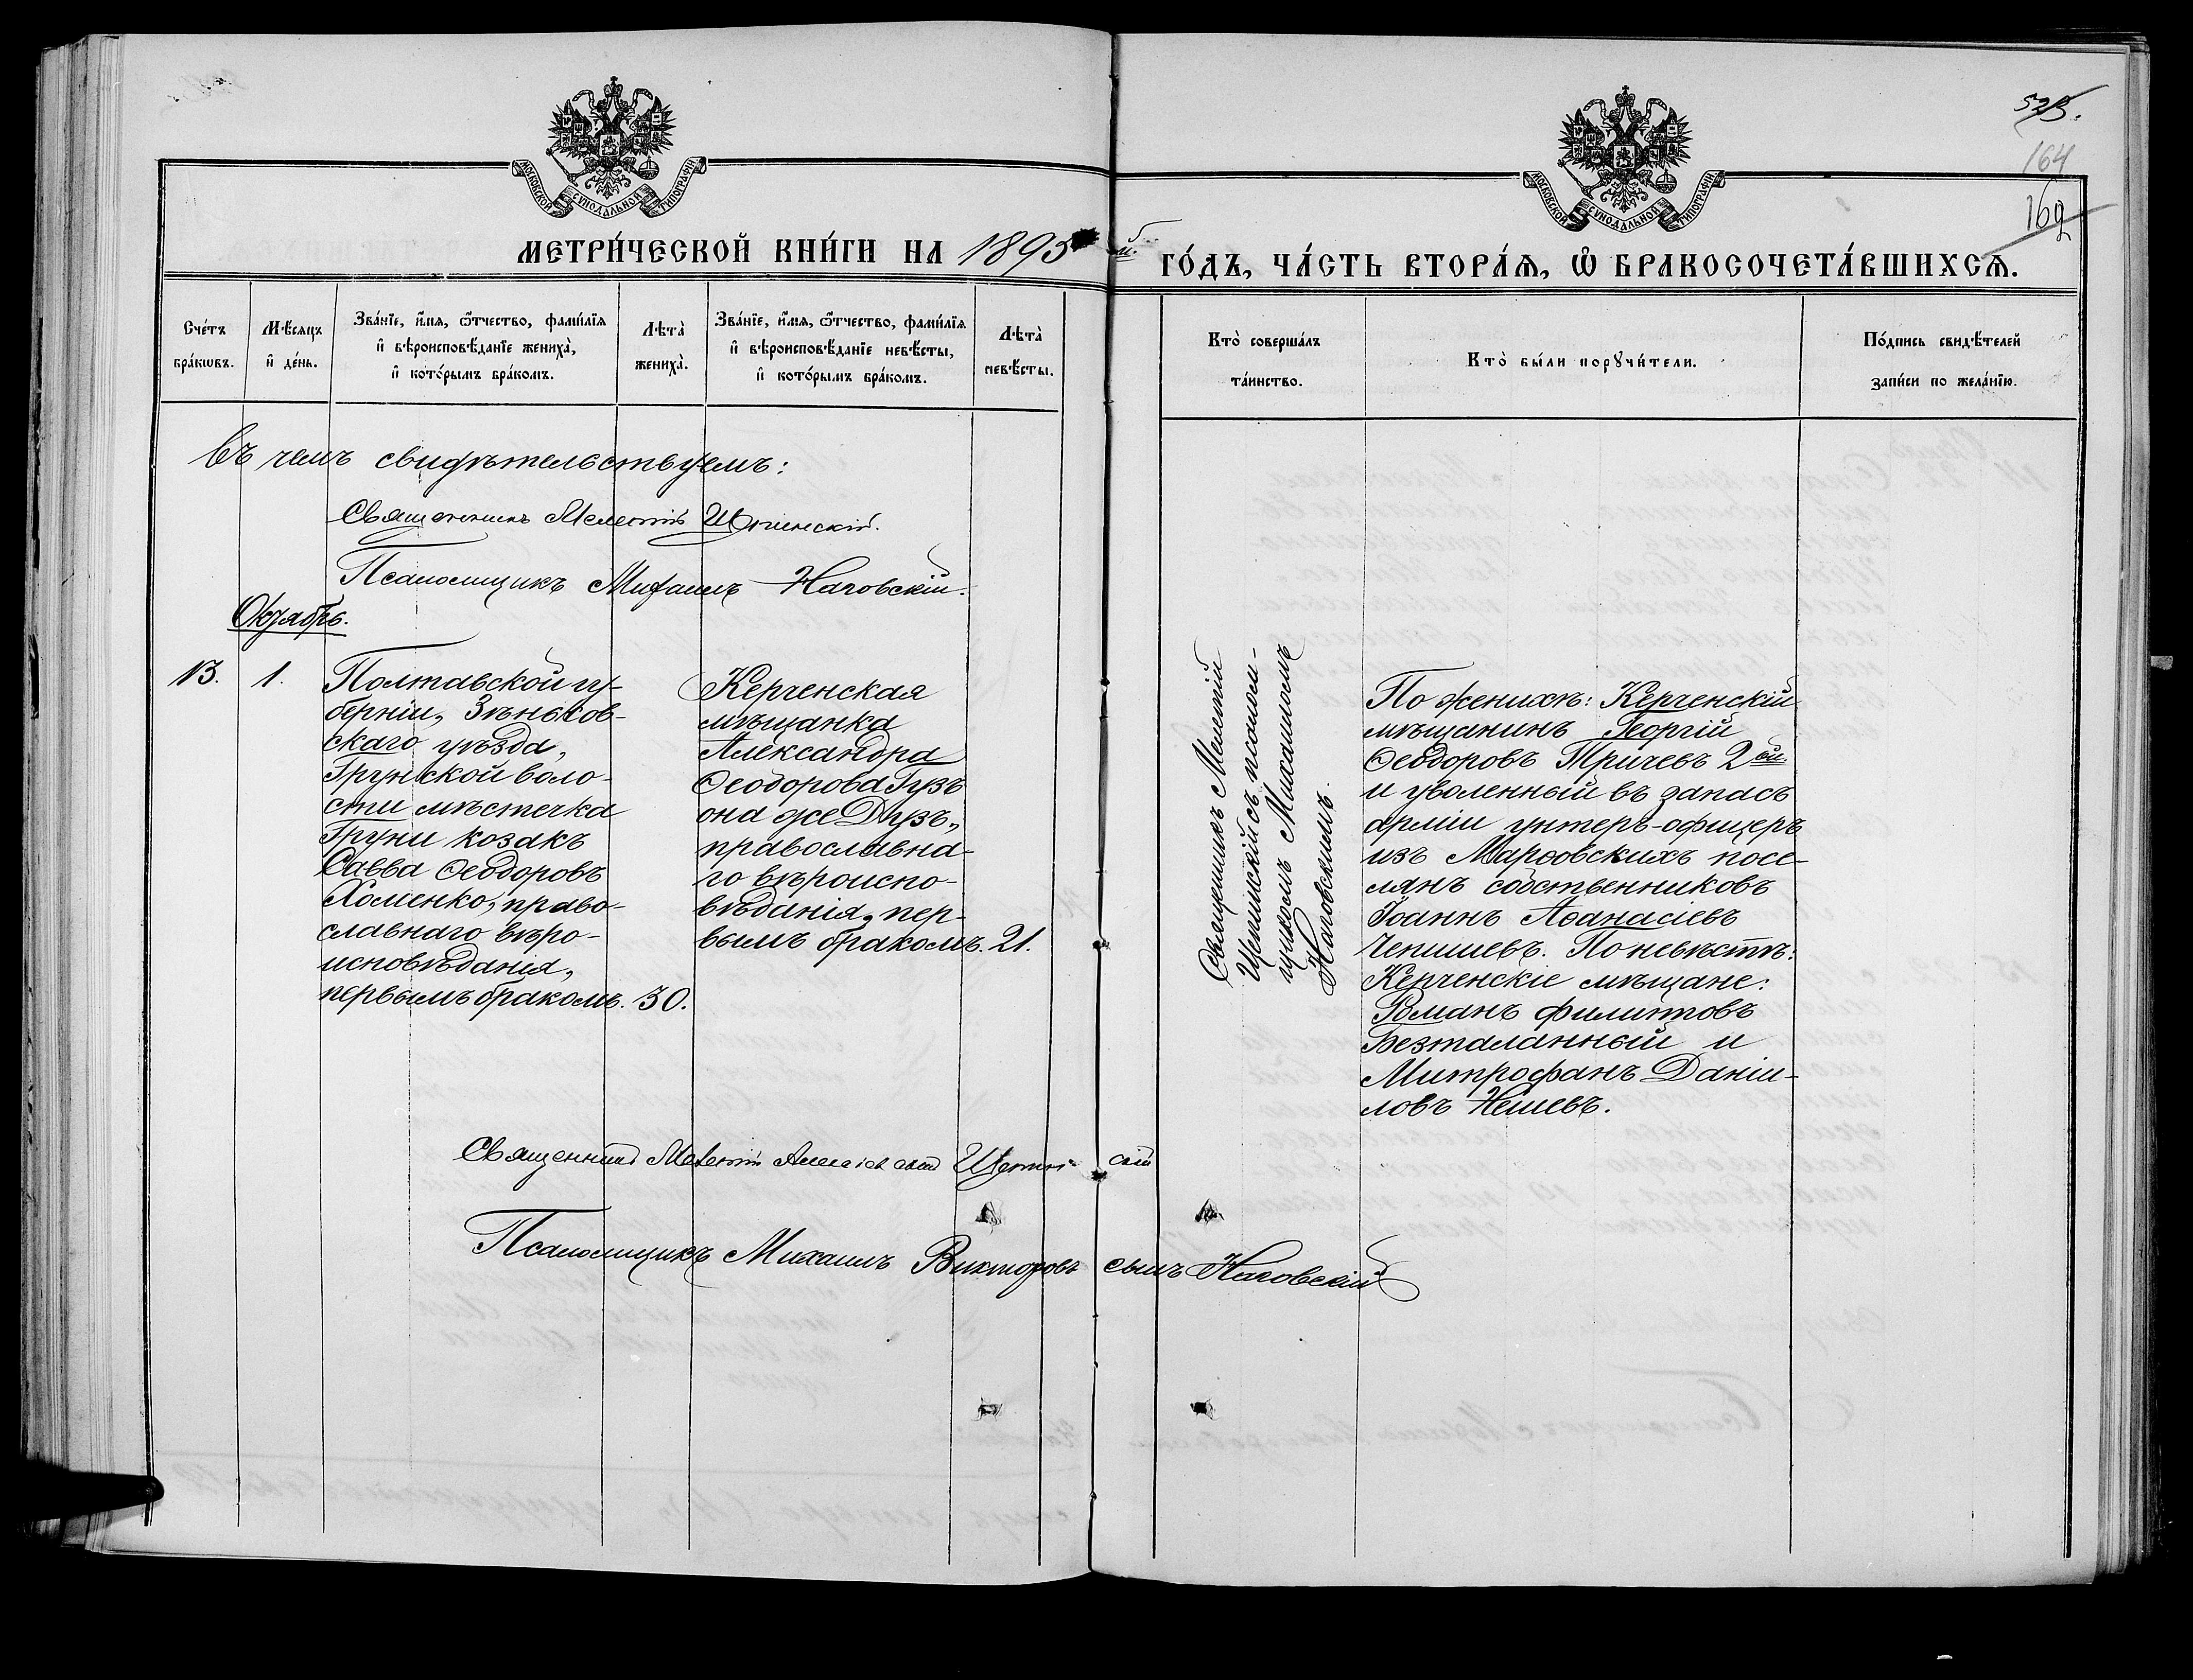 525.
164
162
МОСКОВСКОЙ СѴНОДАЛЬНОЙ ТИПОГРАФІИ
МОСКОВСКОЙ СѴНОДАЛЬНОЙ ТИПОГРАФІИ
МЕТРИ́ЧЕСКОЙ КНИ́ГИ НА 1895 й
ГО́ДЪ, ЧА́СТЬ ВТОРА́Ѧ, Ѽ БРАКОСОЧЕТА́ВШИХСѦ.
Сче́тъ
бра́кѡвъ.
Мѣ́сяцъ
и҆ де́нь.
Зва́нїе, и҆́мя, ѻ҆́тчество, фами́лїя
и҆ вѣроисповѣ́данїе жениха̀,
и҆ кото́рымъ бра́комъ.
Лѣта̀
жениха̀.
Зва́нїе, и҆́мя, ѻ҆́тчество, фами́лїя
и҆ вѣроисповѣ́данїе невѣ́сты,
и҆ кото́рымъ бра́комъ.
Лѣта̀
невѣ́сты.
Кто̀ соверша́лъ
та́инство.
Кто̀ бы́ли порꙋчи́тели.
По́дпись свидѣ́телей
запи́си по жела́нїю.
Въ чемъ свидѣтельствуемъ:
Священникъ Мелетій Щепинскій.
Псаломщикъ Михаилъ Наговскій.
Октябрь.
13.
1.
Полтавской гу-
берніи, Зѣньков-
скаго уѣзда,
Грунской воло-
сти мѣстечка
Груни козакъ
Савва Ѳеодоровъ
Хоменко, право-
славнаго вѣро-
исповѣданія,
первымъ бракомъ.
30.
Керченская
мѣщанка
Александра
Ѳеодорова Гузъ
она же Дузъ,
православна-
го вѣроиспо-
вѣданія, пер-
вымъ бракомъ.
21.
Священникъ Мелетій
Щепинскій съ псалом-
щикомъ Михаиломъ
Наговскимъ.
По женихѣ: Керченскій
мѣщанинъ Георгій
Ѳеодоровъ Тричевъ 2ой
и уволенный въ запасъ
арміи унтеръ-офицеръ
изъ Марѳовскихъ посе-
лянъ собственниковъ
Іоаннъ Аѳанасіевъ
Чепишевъ. По невѣстѣ:
Керченскіе мѣщане:
Романъ Филиповъ
Безталанный и
Митрофанъ Даніи-
ловъ Нешевъ.
Священникъ Мелетій Щепинскій
Псаломщикъ Михаилъ Викторовъ сынъ Наговскій